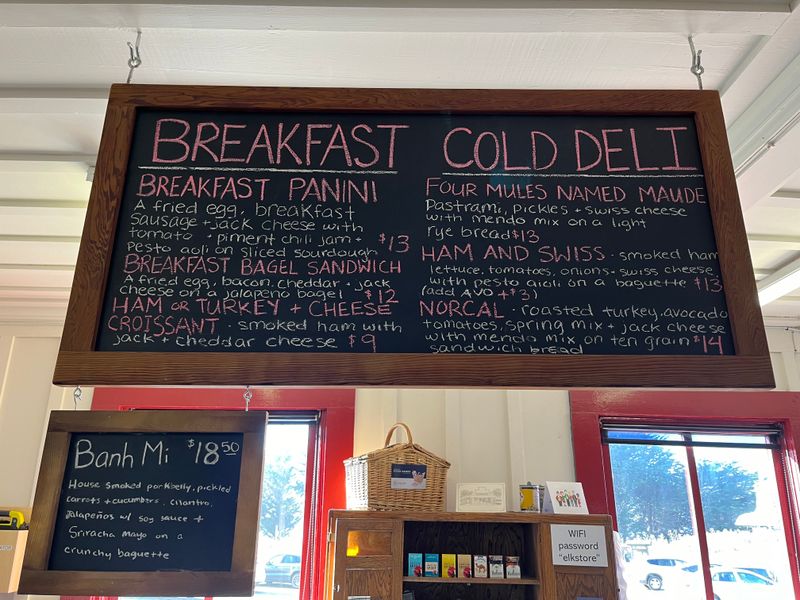 BREAKFAST
BREAKFAST PANINI
A fried egg, breakfast
sausage + jack cheese with
tomato + piment chili jam +
pesto aoli on sliced sourdough $13
BREAKFAST BAGEL SANDWICH
A fried egg, bacon, cheddar + jack
cheese on a jalapeño bagel $12
HAM OR TURKEY + CHEESE
CROISSANT · smoked ham with
jack + cheddar cheese $9
COLD DELI
FOUR MULES NAMED MAUDE
Pastrami, pickles + swiss cheese
with mendo mix on a light
rye bread $13
HAM AND SWISS · smoked ham
lettuce, tomatoes, onions + swiss cheese
with pesto aioli on a baguette $13
(add AVO + $3)
NORCAL · roasted turkey, avocado
tomatoes, spring mix + jack cheese
with mendo mix on ten grain $14
sandwich bread
Banh Mi $18.50
House smoked porkbelly, pickled
carrots + cucumbers, cilantro,
Jalapeños w/ soy sauce +
Sriracha mayo on a
crunchy baguette
WIFI
password
"elkstore"